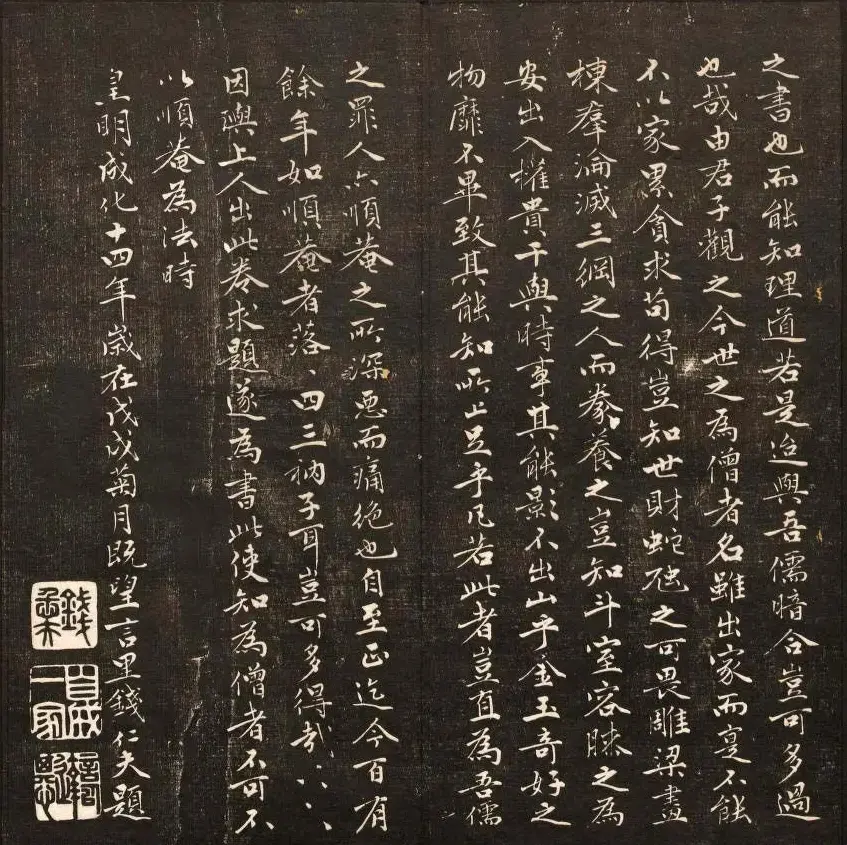 之書也而能知理道若是迨與吾儒暗合豈可多過
也哉由君子觀之今世之為僧者名雖出家而寔不能
不以家累貪求苟得豈知世財蛇虺之可畏雕梁畫
棟羣淪滅三綱之人而豢養之豈知斗室容膝之為
安出入權貴干與時事其能影不出山乎金玉奇好之
物靡不畢致其能知所止足乎凡若此者豈直為吾儒
之罪人亦順菴之所深惡而痛絶也自至正迄今百有
餘年如順菴者落、四三衲子耳豈可多得哉、、、
因與上人出此卷求題遂為書此使知為僧者不可不
以順菴為法時
皇明成化十四年歲在戊戌菊月既望言里錢仁夫題
錢